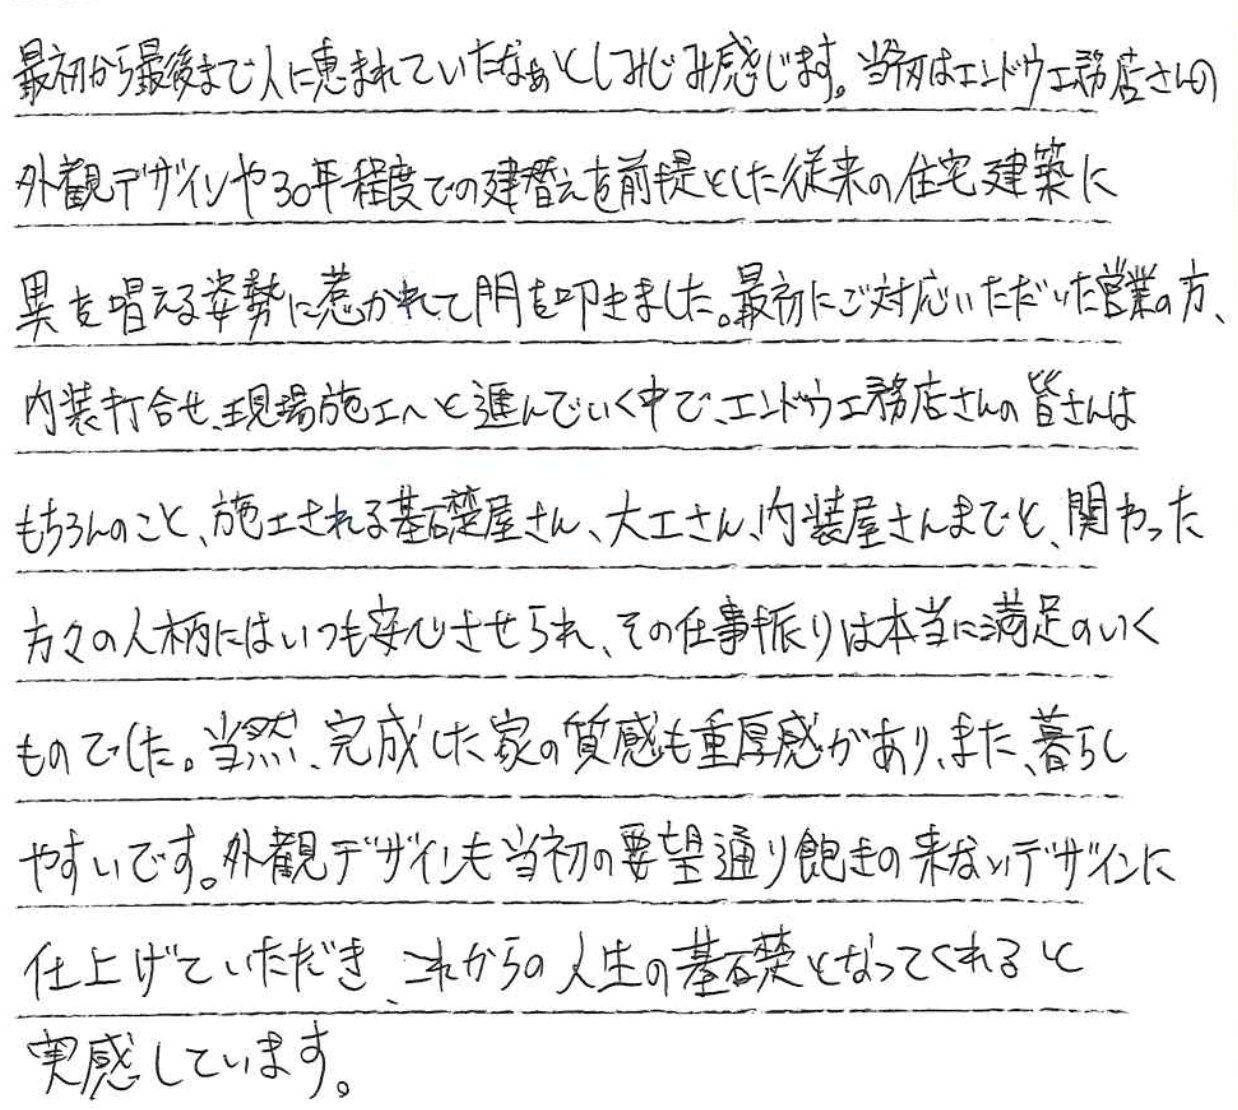 最初から最後まで人に恵まれていたなぁとしみじみ感じます。当初はエンドウ工務店さんの
外観デザインや30年程度での建替えを前提とした従来の住宅建築に
異を唱える姿勢に惹かれて門を叩きました。最初にご対応いただいた営業の方、
内装打合せ、現場施工へと進んでいく中で、エンドウ工務店さんの皆さんは
もちろんのこと、施工される基礎屋さん、大工さん、内装屋さんまでと、関わった
方々の人柄にはいつも安心させられ、その仕事振りは本当に満足のいく
ものでした。当然、完成した家の質感も重厚感があり、また、暮らし
やすいです。外観デザインも当初の要望通り飽きの来ないデザインに
仕上げていただき、これからの人生の基礎となってくれると
実感しています。